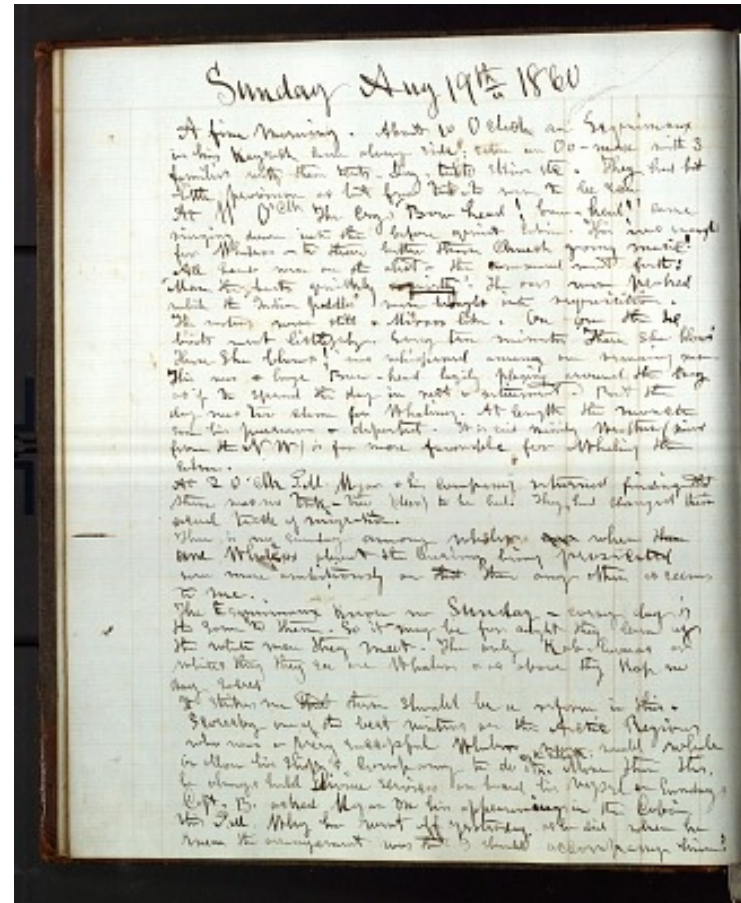 Sunday Aug 19th 1860
A fine morning. About 10 O clock an Esquimaux
in his Kayak came along side; also an Oo-miak with 3
families with their tents - dogs, &c. They had but
little provision as
At 11 O'Clk The cry, Bow-head! bow-head!! came
ringing down into the before quiet cabin. This was enough
for Whalers - to them better than music!
All hands were on the alert - the command went forth:
Man the boats quickly quietly! The oars were peaked
while the Indian paddles were brought into requisition.
The waters were still & Mirror like. One by one the
boats went Every few minutes There she blows
There She blows! was whispered among our remaining men
This was a large Bow-head lazily playing around the bay
as if to spend the day in rest & retirement. But the
day was too calm for Whaling. At length the monster
his & departed. It is said windy Weather (wind
from the N W) is far more favorable for Whaling than
calm.
At 2 O'Clk P.M. & his company returned finding that
there was no Tuk-too (deer) to be had. They had changed their
usual track of migration.
There is no Sunday among whalers when
are Whales about the business being prosecuted
even more ambitiously on that than any other as seems
to me.
The Esquimaux know no Sunday - every day is
the same to them. So it may be for aught they learn of
the white men they meet. The only Kob-lu-nas or
whites they see are Whalers & as above they keep no
day sacred
It strikes me that there should be a reform in this.
Scoresby one of the best writers on the Arctic Regions
who was a very successful Whaler never would whale
or allow his Ships Company to do it. More than this,
he always held Divine services on board his vessel on Sundays
Capt. B. asked on his appearing in the Cabin
this P.M. Why he went off yesterday as he did when he
knew the arrangement was that I should accompany him?